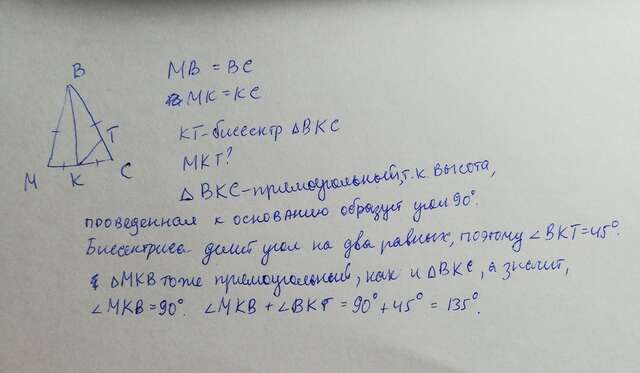 B
M
K
C
T
MB = BC
MK = KC
KT-биссектр ΔBKC
MKT?
Δ BKC-прямоугольный, т.к высота,
проведенная к основанию образует угол 90°.
Биссектриса делит угол на два равных, поэтому ∠BKT=45°.
ΔMKB тоже прямоугольный, как и ΔBKC, а значит,
∠MKB=90°. ∠MKB + ∠BKT = 90°+45° = 135°.